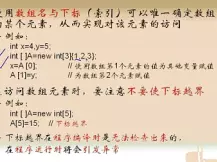 使用数组名与下标（索引）可以唯一确定数组
的某个元素，从而实现对该元素的访问
例如：
int x=4,y=5;
int []A=new int[3]{1,2,3};
x=A [0]; // 使用数组第1个元素的值为其他变量赋值
A [1]=y; // 为数组第2个元素赋值
访问数组元素时，要注意不要使下标越界
例如：
int []A=new int[5];
A[5]=15; // 下标越界
下标越界在程序编译时是无法检查出来的，
在程序运行时将会引发异常